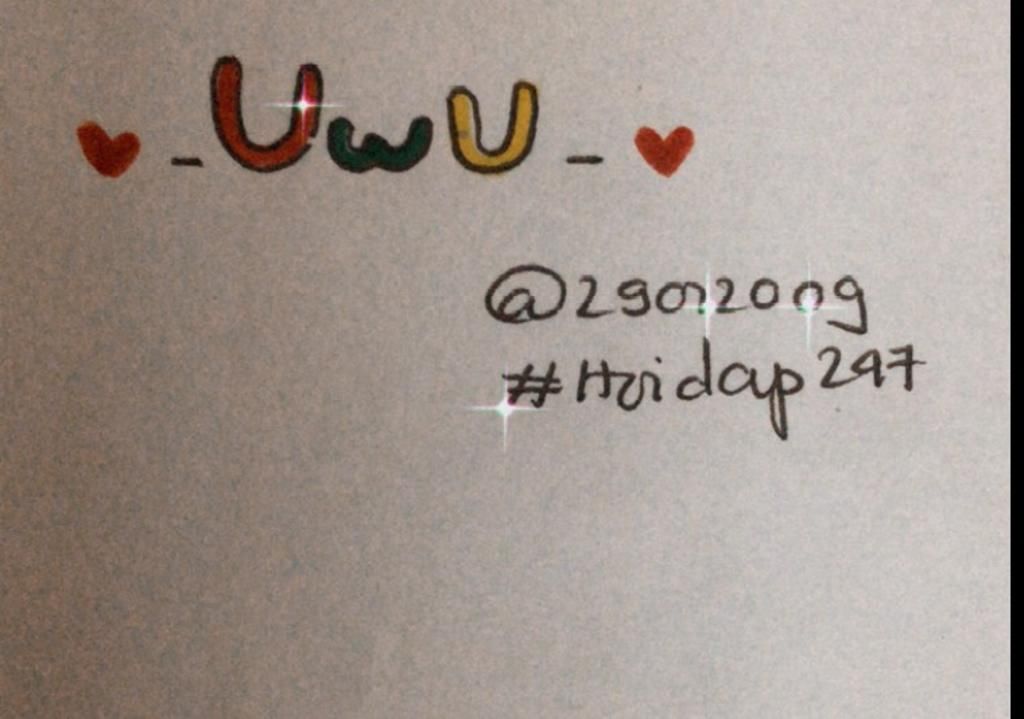 ❤ - UwU - ❤
@29072009
#Hoidap247